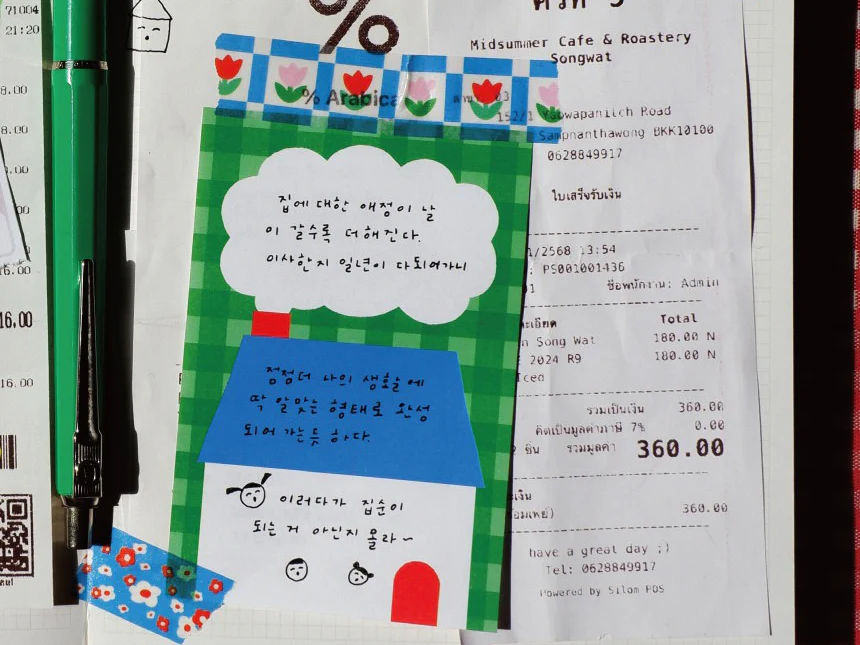 71004
21:20
8.00
8.00
16.00
16.00
%
% Arabica
집에 대한 애정이 날
이 갈수록 더해진다.
이사한지 일년이 다되어가니
점점더 나의 생활에
딱 알맞는 형태로 완성
되어 가는듯 하다.
이러다가 집순이
되는 거 아닌지 몰라~
Midsummer Cafe & Roastery
Songwat
03
152/1 Yaowapanitch Road
Sampnanthawong BKK10100
0628849917
ใบเสร็จรับเงิน
/2568 13:54
: PS001001436
ชื่อพนักงาน: Admin
Total
Song Wat 180.00 N
2024 R9 180.00 N
Iced
รวมเป็นเงิน 360.00
คิดเป็นมูลค่าภาษี 7% 0.00
ชิ้น รวมมูลค่า 360.00
360.00
have a great day ;)
Tel: 0628849917
Powered by Silom POS